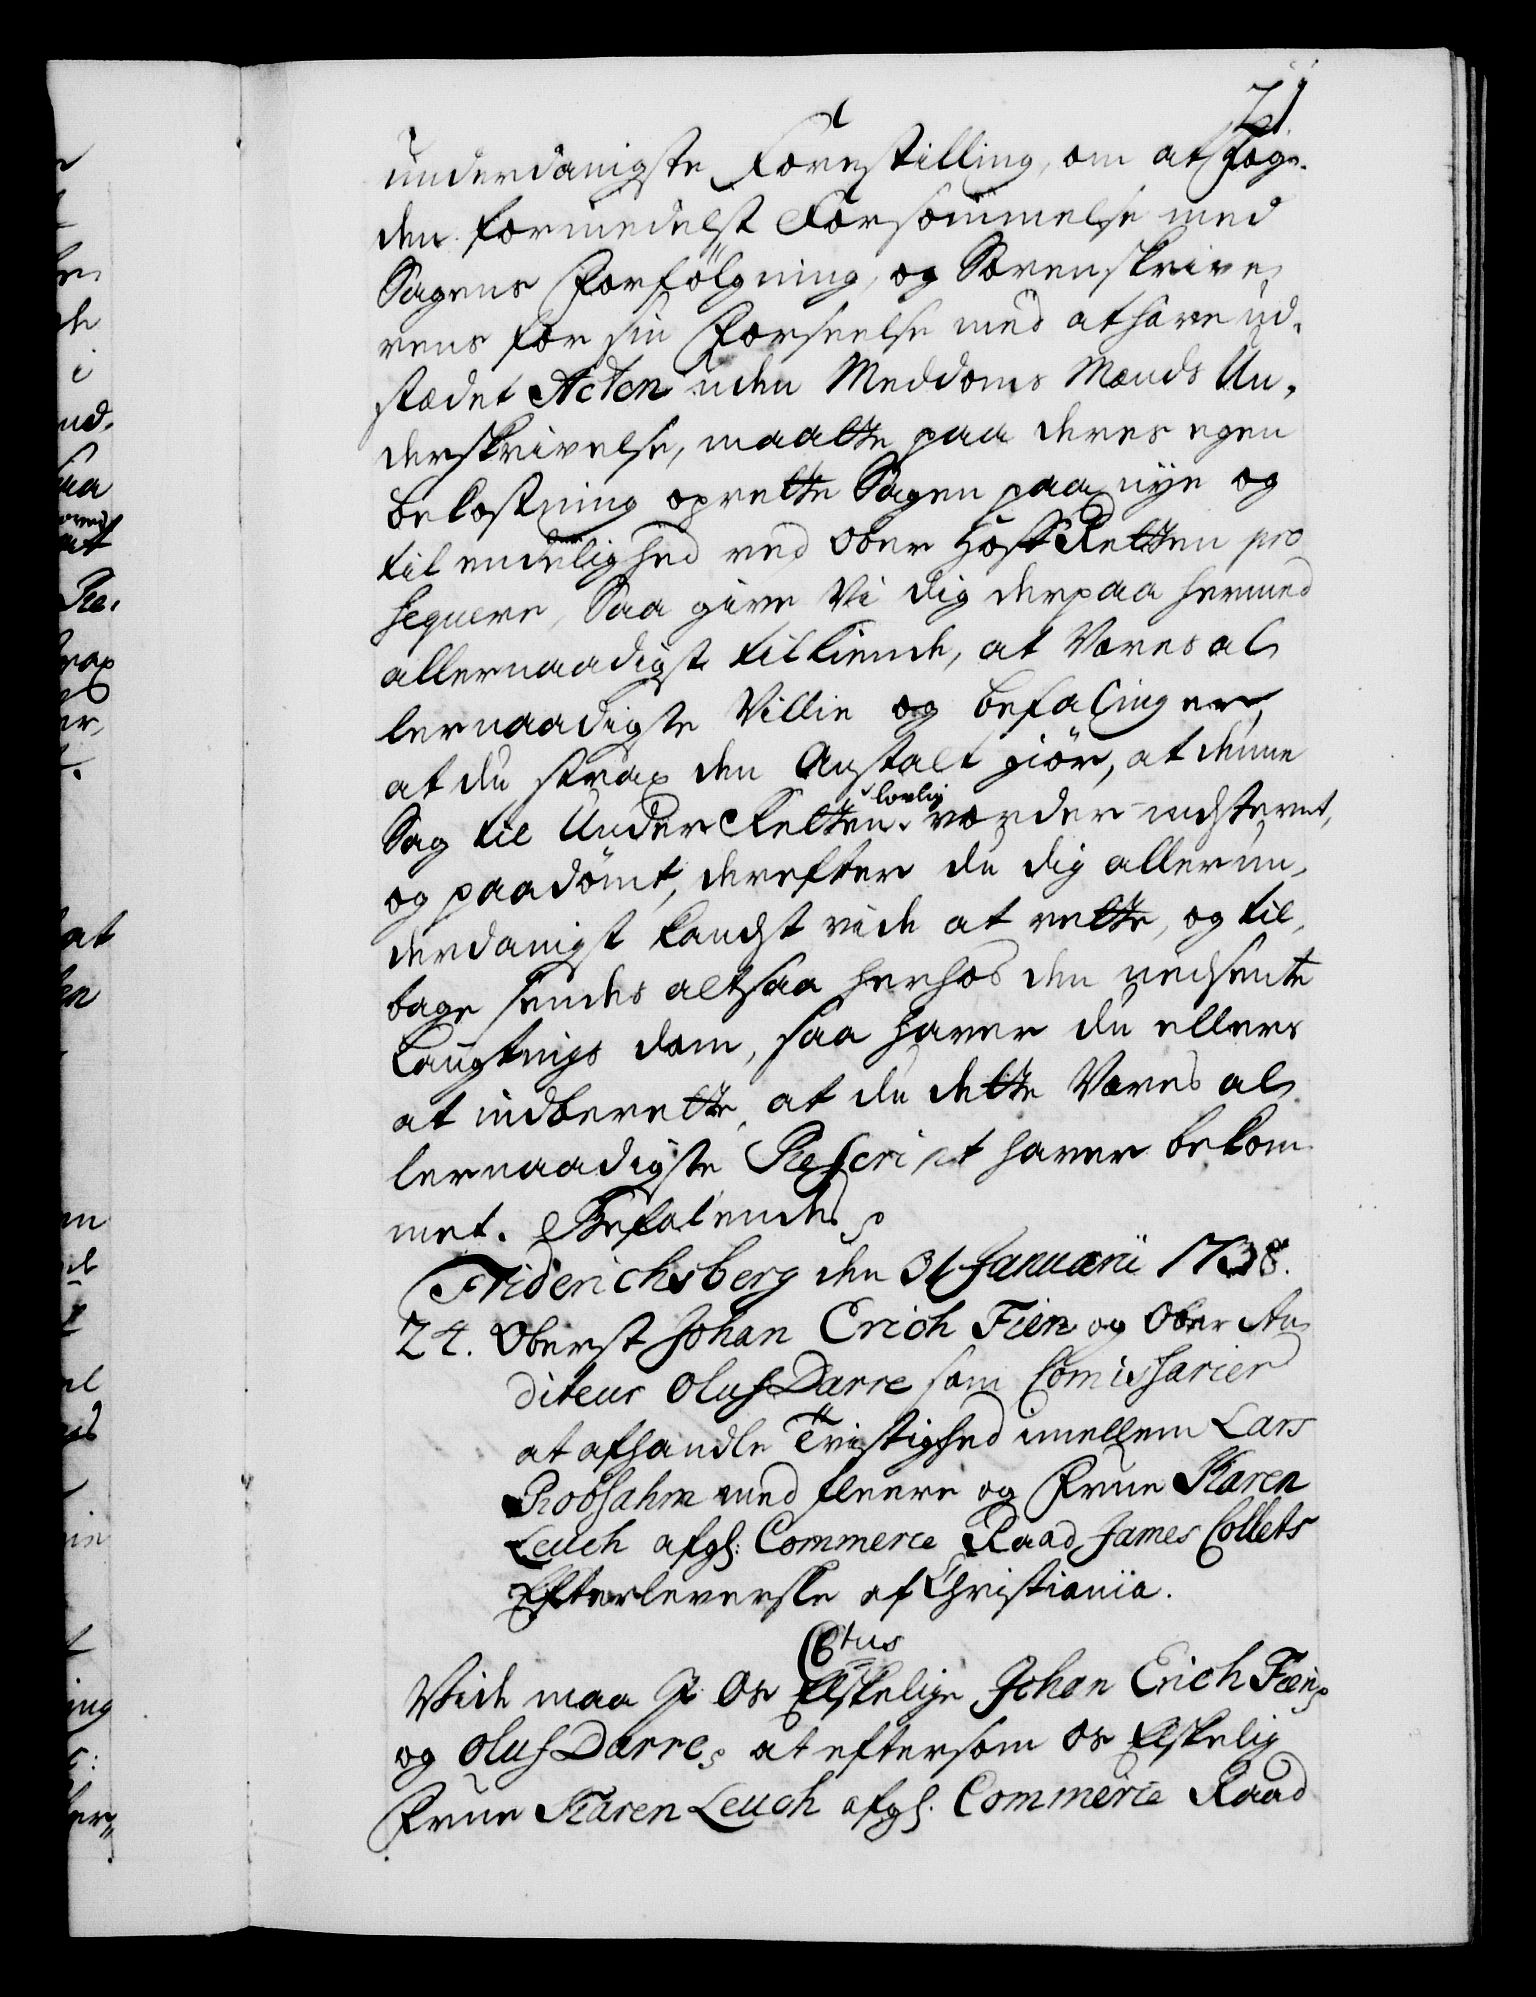 21
underdanigste Forestilling, om at Foge-
den formedelst Forsömmelse med
Sagens Forfölgning, og Sorenskrive,
rens for sin Forseelse med at have ud-
stædet Acten uden Meddoms Mænds Un,
derskrivelse, maatte paa deres egen
bekostning oprette Sagen paa nye og
til endelighed ved Ober Hof Retten pro
seqvere, Saa give Vi dig derpaa hermed
allernaadigst tilkiende, at Vores al,
lernaadigste Villie og befalinger,
at du strax den Anstalt giör, at denne
Sag til Under Retten lovlig vorder indstevnt,
og paadömt, derefter du dig allerun,
derdanigst kandst vide at rette, og til,
bage sendes altsaa herhos den nedsente
Laugtings dom, saa haver du ellers
at indberette, at du dette Vores al,
lernaadigste Rescript haver bekom
met. Befalendes
Friderichsberg den 31 Januarii 1738.
24. Oberst Johan Erich Fien og Ober Au
diteur Oluf Darre som Comissarier
at afhandle Tvistighed imellem Lars
Robsahm med fleere og Frue Karen
Leuch afgl: Commerce Raad James Collets
Efterleverske af Christiania.
C6tus
Vide maa I Os Elskelige Johan Erich Fien,
og Oluf Darre, at eftersom Os Elskelig
Frue Karen Leuch afgl. Commerce Raad